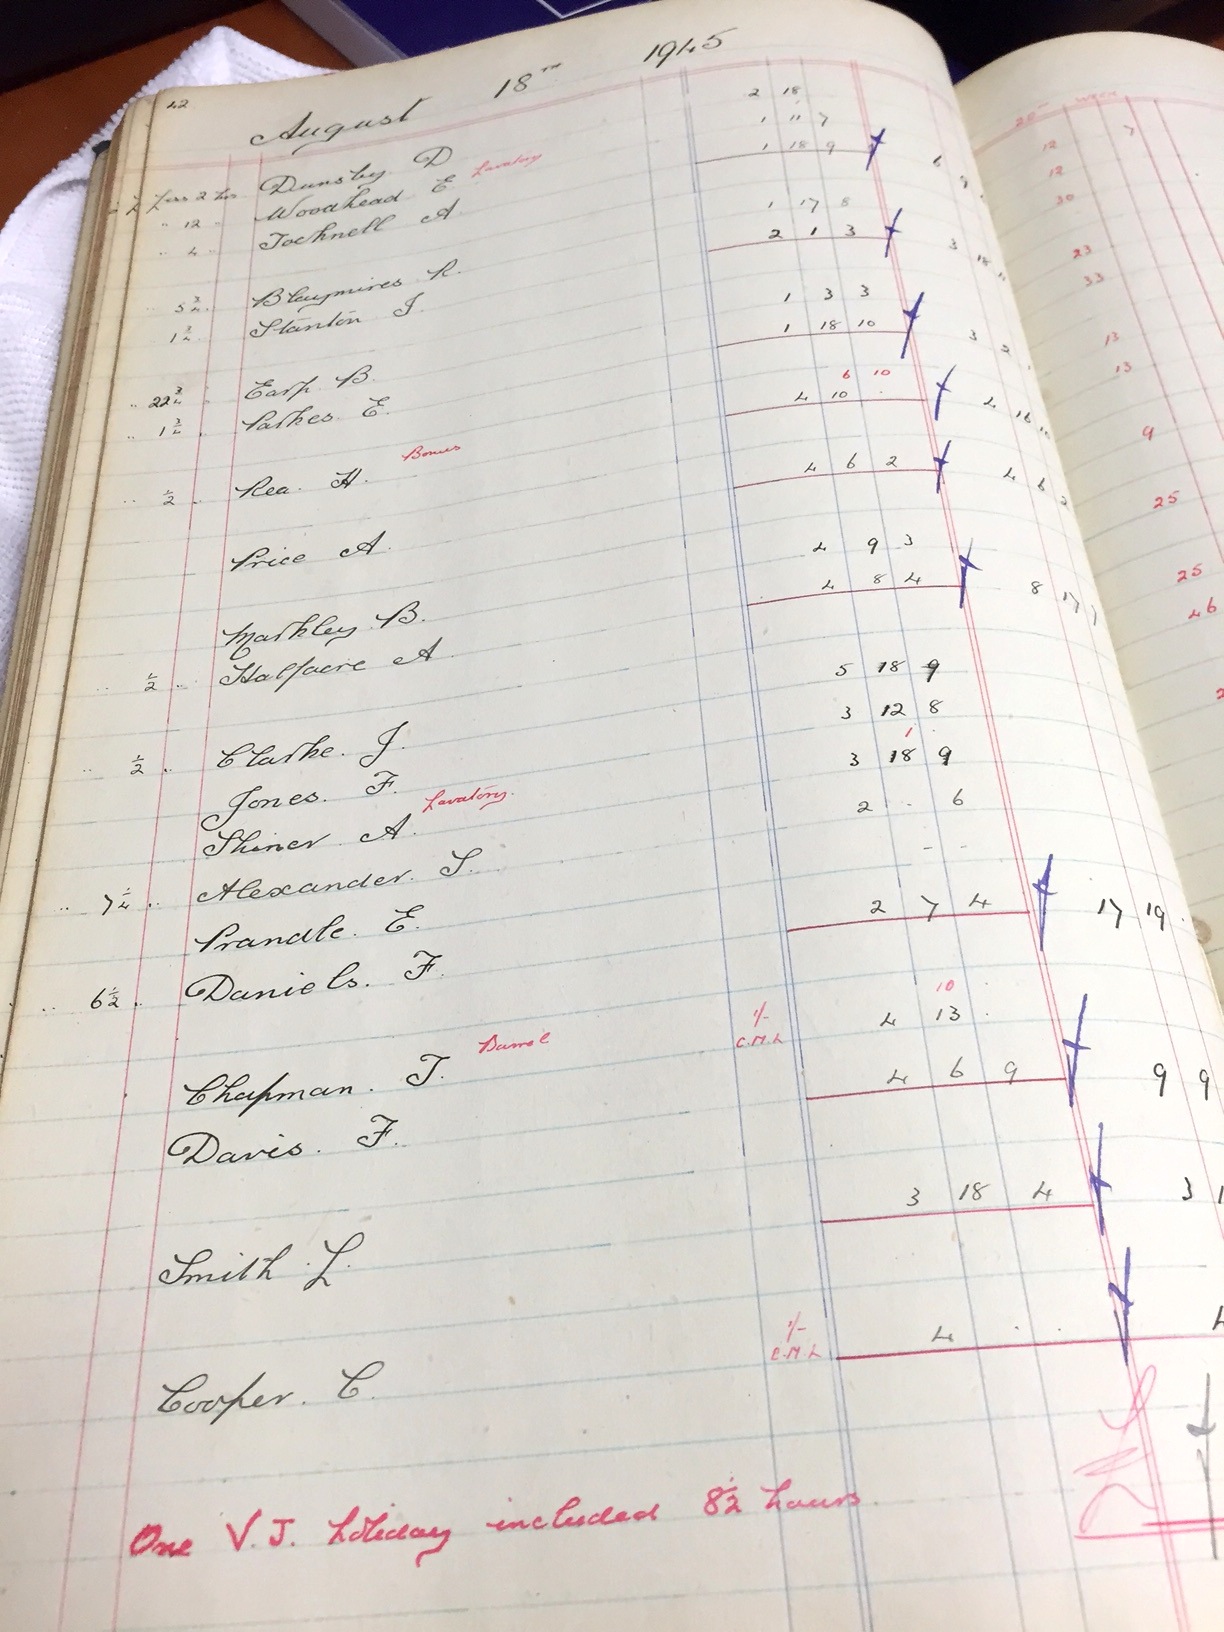 42
August 18TH 1945
Less 2 hrs. Dunsby D 2 18
" 12 Woodhead E Lavatory 1 " 7
" 4 Tocknell A 1 18 9 6 9
" 5 3/4 " Blaymires R. 1 17 8
1 3/4 " Stanton J. 2 1 3 3 18 11
" 22 3/4 " Earp B. 1 3 3
" 1 3/4 " Parkes E. 1 18 10 3 2
Bonus 6 10
" 1/2 " Rea. H. 4 10 - 4 16 10
Price A 4 6 2 4 6 2
Markley B. 4 9 3
" 1/2 " Halfacre A 4 8 4 8 17 7
" 1/2 " Clarke. J. 5 18 9
Jones. F. 3 12 8
Shiner A. Lavatory. 1 3 18 9
" 7 1/4 " Alexander. S. 2 - 6
Prandle. E. - -
" 6 1/2 " Daniels. F. 2 7 4 17 19
Chapman. T. 1/- C.M.L 10 4 13 -
Davis. F. 4 6 9 9 9
Smith L. 3 18 4 3 1
Cooper. C. 1/- C.M.L 4 . . 4
One V.J. holiday included 8 1/2 hours.
20TH WEEK
7
12
12
30
23
33
13
13
9
25
25
46
2